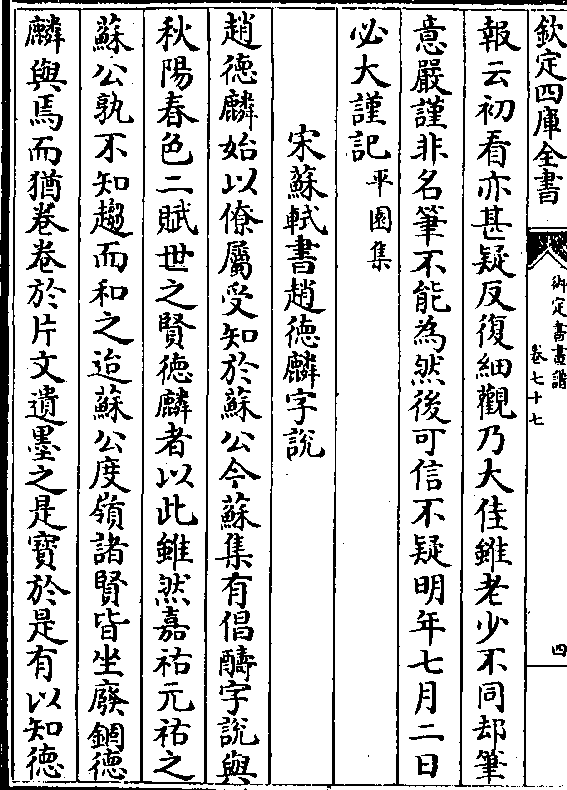 欽定四庫全書
御定書畫譜
卷七十七
四
報云初看亦甚疑反復細觀乃大佳雖老少不同却筆
意嚴謹非名筆不能為然後可信不疑明年七月二日
必大謹記平園集
宋蘇軾書趙德麟字說
趙德麟始以僚屬受知於蘇公今蘇集有倡醻字說與
秋陽春色二賦世之賢德麟者以此雖然嘉祐元祐之
蘇公孰不知趨而和之迨蘇公度嶺諸賢皆坐廢錮德
麟與焉而猶卷卷於片文遺墨之是寶於是有以知德